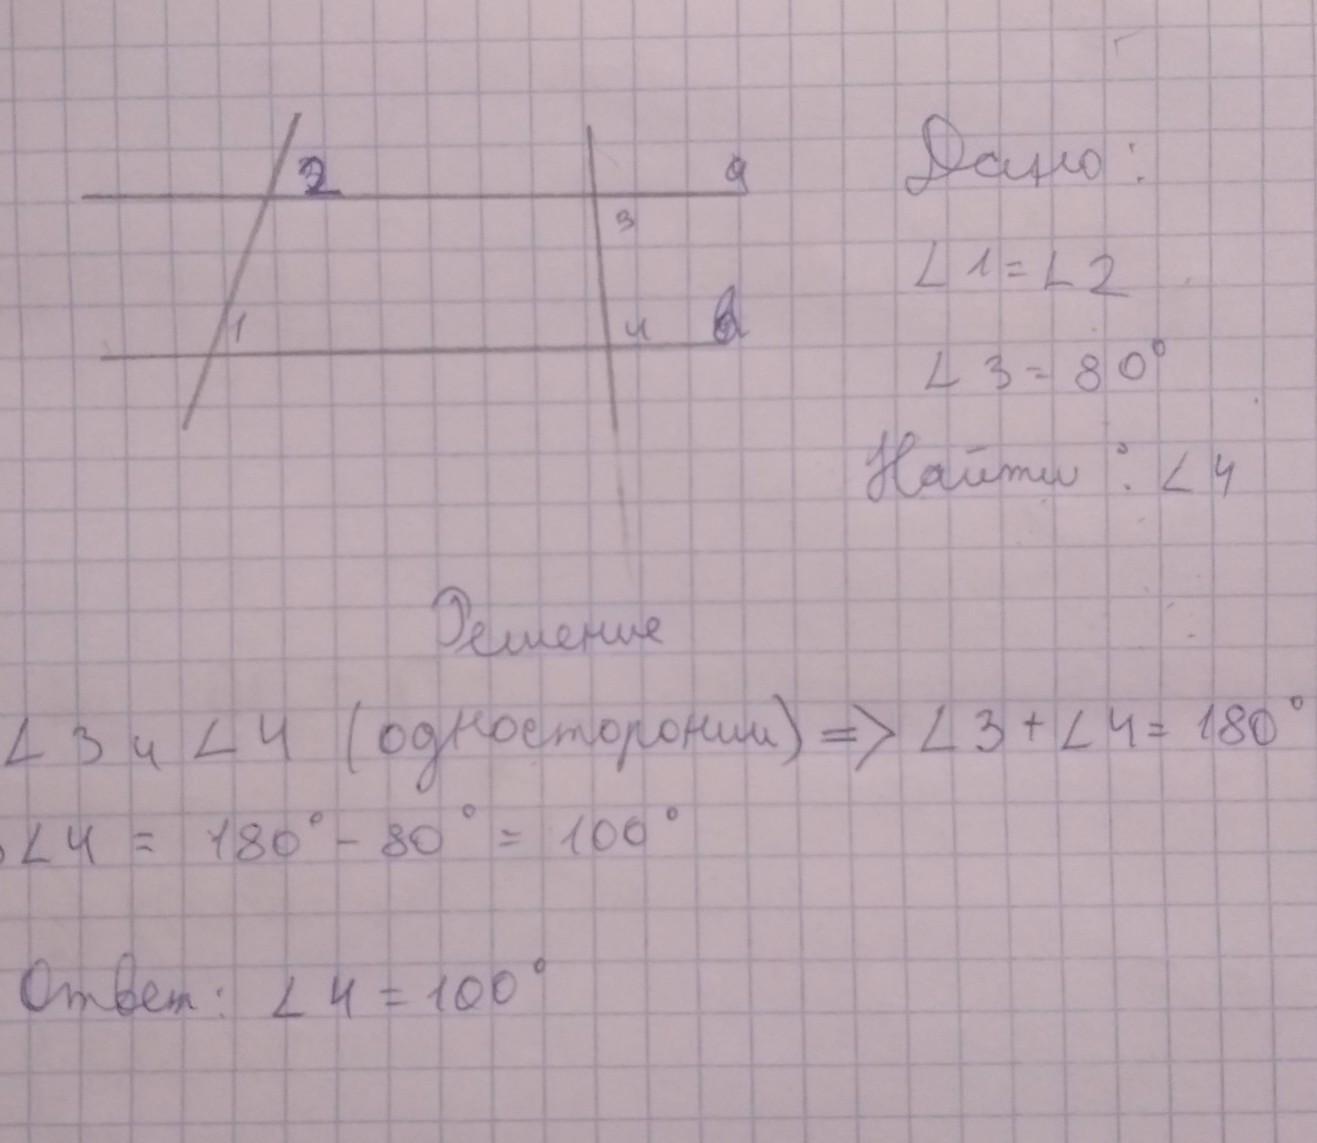 2
a
3
1
4
в
Дано:
∠1=∠2
∠3=80°
Найти: ∠4
Решение
∠3 и ∠4 (односторонии) => ∠3+∠4=180°
∠4 = 180°-80° = 100°
Ответ: ∠4=100°